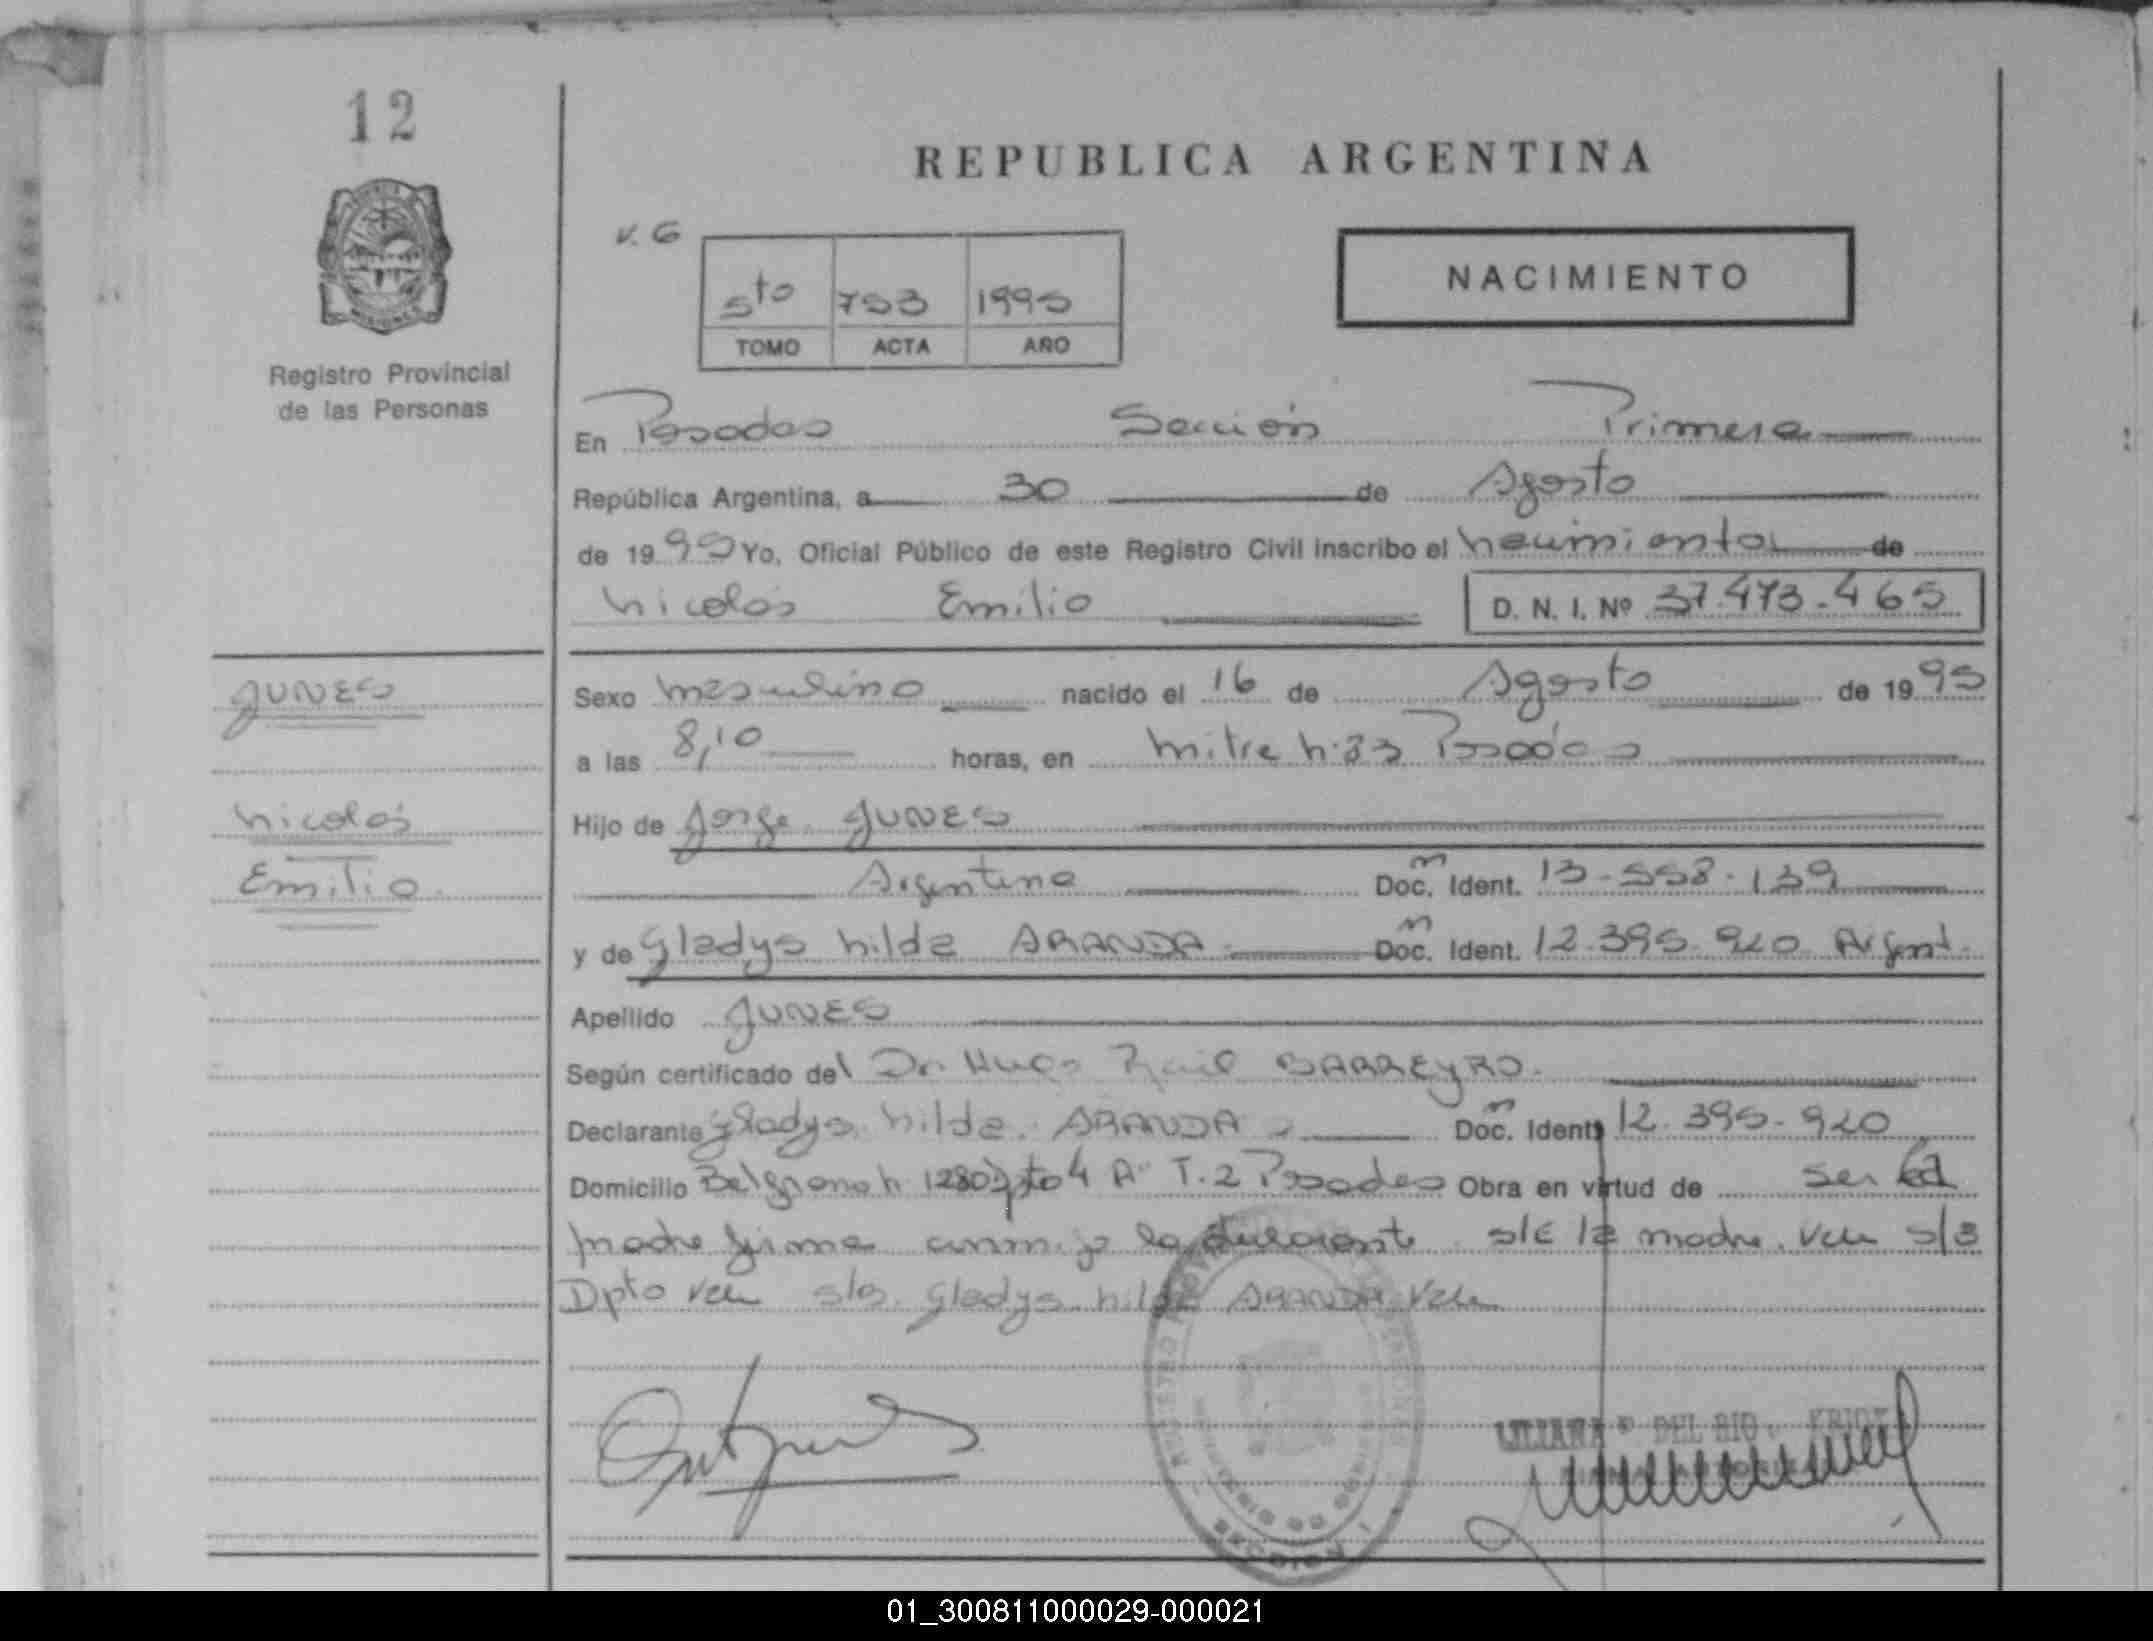 12
REPUBLICA ARGENTINA
v. G
5to 753 1995
TOMO ACTA AÑO
NACIMIENTO
MISIONES
Registro Provincial
de las Personas
En Posadas Sección Primera
República Argentina, a 30 de Agosto
de 1995 Yo, Oficial Público de este Registro Civil inscribo el nacimiento de
Nicolás Emilio D. N. I. Nº 37.473.465
JUNES
Sexo masculino nacido el 16 de Agosto de 1995
a las 8,10 horas, en Mitre n:33 Posadas
Nicolás
Hijo de Jorge JUNES
Emilio
Argentina Doc. Ident. 13.558.139
y de Gladys Nilda ARANDA Doc. Ident. 12.395.920 Argent.
Apellido JUNES
Según certificado del Dr. Hugo Raúl BARREYRO.
Declarante Gladys Nilda ARANDA Doc. Ident. 12.395.920
Domicilio Belgrano n 1280 Dpto 4 A T.2 Posadas Obra en virtud de ser la
madre firma conmigo la declarante s/E la madre. Vale s/B
Dpto Vale s/B. Gladys Nilda ARANDA Vale
LILIANA DEL RIO
SECCION 1
01_300811000029-000021